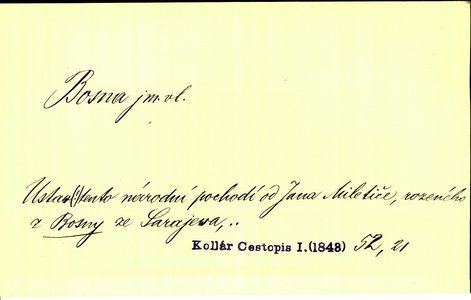 Bosna jm. vl.
Ustav(:)tento národní pochodí od Jana Miletiče, rozeného
z Bosny ze Sarajeva,..
Kollár Cestopis I.(1843) 52, 21